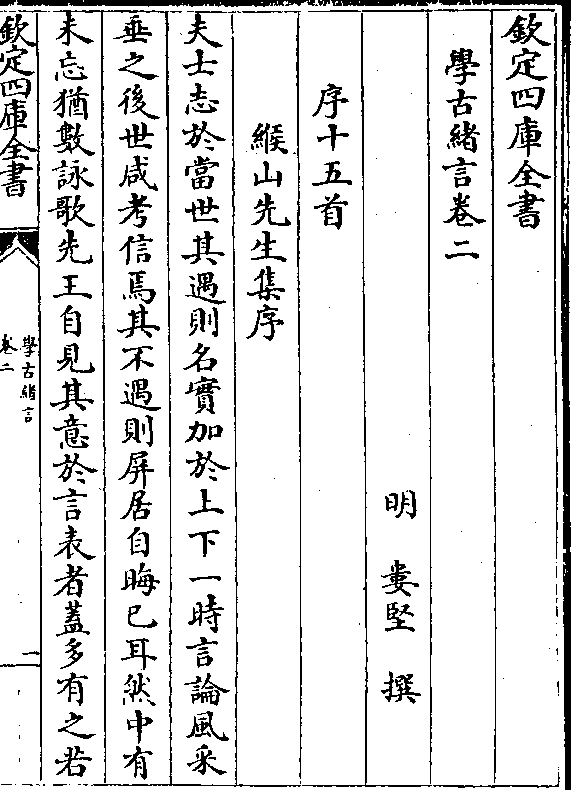 欽定四庫全書
學古緒言卷二
明　婁堅　撰
序十五首
緱山先生集序
夫士志於當世其遇則名實加於上下一時言論風采
垂之後世咸考信焉其不遇則屏居自晦已耳然中有
未忘猶數詠歌先王自見其意於言表者蓋多有之若
欽定四庫全書
學古緒言
卷二
一